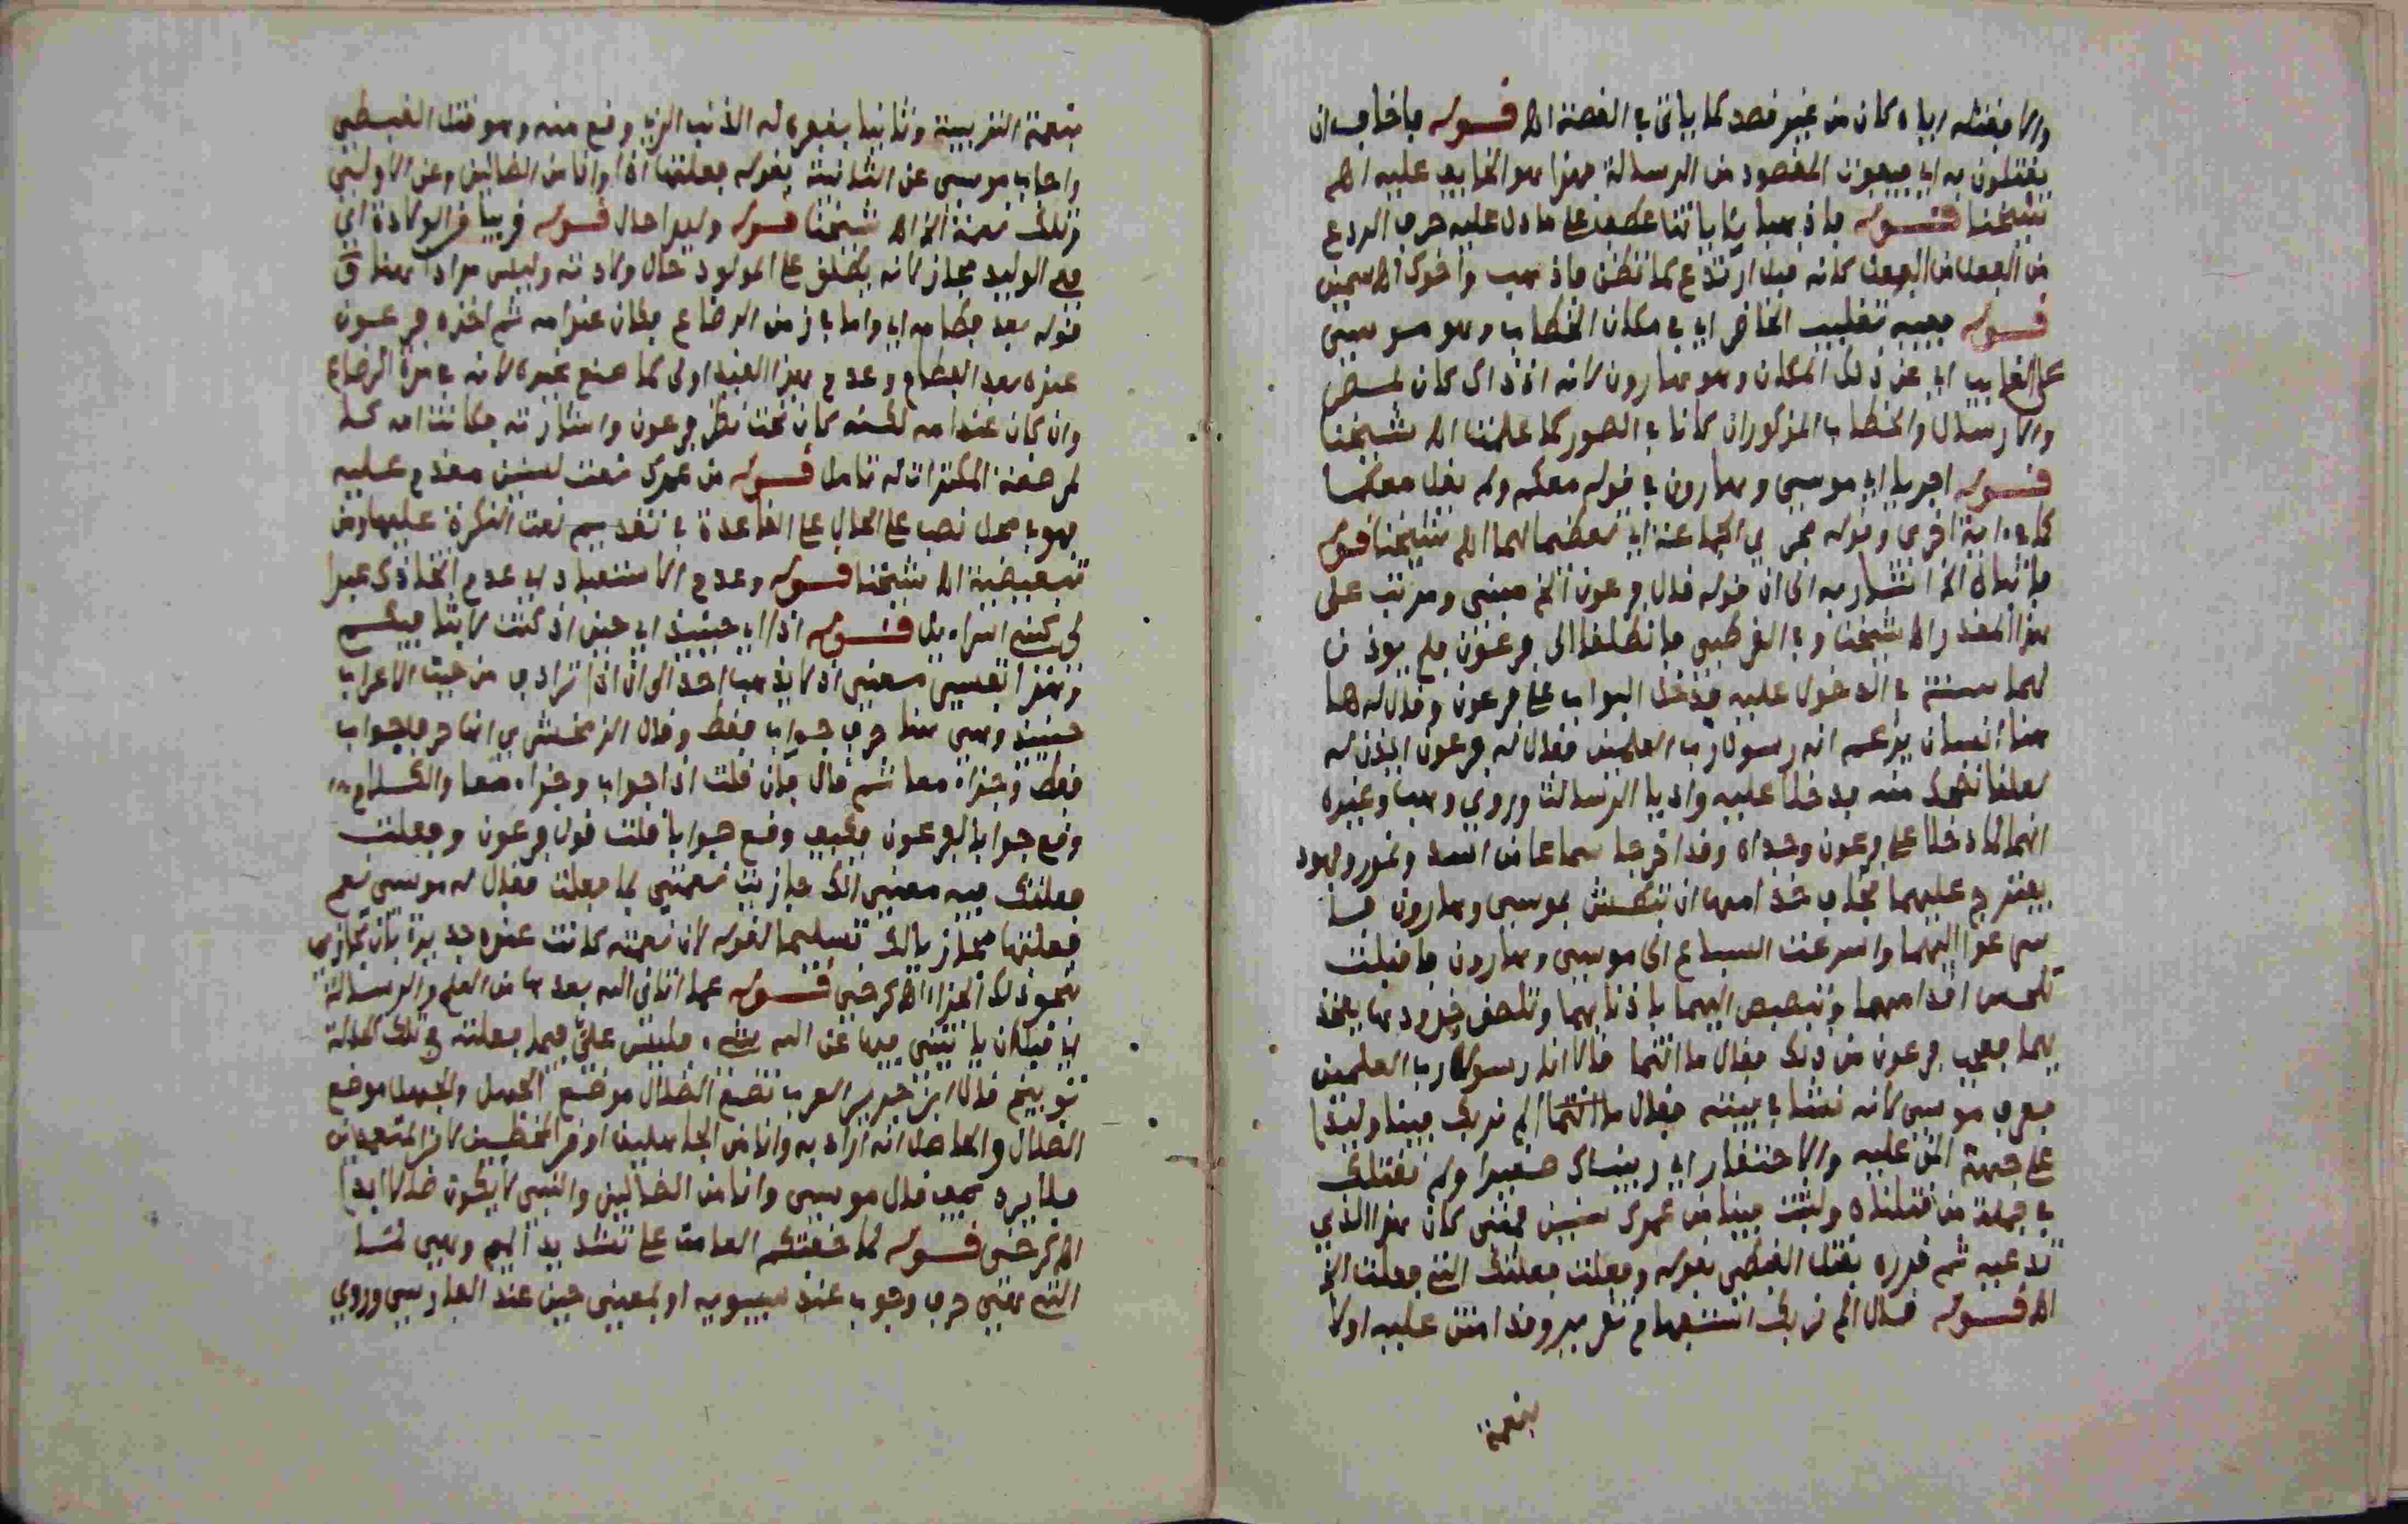 والا فقتله اياه كان من غير قصد كما ياتى في القصة اه قوله فاخاف ان
يقتلون به اي فيفوت المقصود من الرسالة فهذا هو الخايف عليه اهـ
شيخنا قوله فاذهبا بئاياتنا عطف على ما دل عليه حرف الردع
من الفعل كانه قيل ارتدع كما تظن فاذهب وأخوك اه سمين
قوله ففيه تغليب الحاضر اي في مكان الخطاب وهو موسى
على الغايب اي عن ذلك المكان وهو هارون لانه اذ ذاك كان بمصر
والارسال والخطاب المذكوران كانا في الطور كما علمت اه شيخنا
قوله اجريا اي موسى وهارون في قوله معكم ولم يقل معكما
كما في ءاية اخرى وقوله مجرى الجماعة اي تعظيما لهما اهـ شيخنا قوله
فاتياه الخ اشار به الى ان قوله قال فرعون الخ مبني ومرتب على
هذا المقدر اه شيخنا وفي القرطبي فانطلقا الى فرعون فلم يوذن
لهما سنة في الدخول عليه فدخل البواب على فرعون وقال له ها
هنا انسان يزعم انه رسول رب العلمين فقال له فرعون ايذن له
لعلنا نضحك منه فدخلا عليه واديا الرسالة وروى وهب وغيره
انهما لما دخلا على فرعون وجداه وقد اخرج سباعا من اسد ونمور وفهود
يتفرج عليها فخاف خدامها ان تبطش بموسى وهارون فا
سرعوا اليها واسرعت السباع الى موسى وهارون فاقبلت
تلحس اقدامهما وتبصبص اليهما باذنابها وتلصق خدودها بفخذ
يهما فعجب فرعون من ذلك فقال ما انتما قالا انا رسول رب العلمين
فعرف موسى لانه نشا في بيته فقال ما انتما الم نربك فينا وليدا
على جهة المن عليه والاحتقار اي ربيناك صغيرا ولم نقتلك
في جملة من قتلناه ولبثت فينا من عمرك سنين فمتى كان هذا الذي
تدعيه ثم قرره بقتل القبطي بقوله وفعلت فعلتك التي فعلت الخ
اه قوله قال الم نربك استفهام تقرير وقد امتن عليه اولا
بنعمة
بنعمة التربية وثانيا بغفره له الذنب الذي وقع منه وهو قتل القبطي
واجاب موسى عن الثانية بقوله فعلتها اذا وانا من الضالين وعن الاولى
وتلك نعمة الخ اه شيخنا قوله وليدا حال قوله قريبا من الولادة اي
فهو الوليد مجاز لانه يطلق على المولود حال ولادته وليس مرادا هنا ق
قوله بعد فطامه اي واما في زمن الرضاع فكان عند امه ثم اخذه فرعون
عنده بعد الفطام وعدم هذا القيد اولى كما صنع غيره لانه في مدة الرضاع
وان كان عند امه لكنه كان تحت نظر فرعون واشارته فكانت امه كـ
لمرضعة المكتراة له تامل قوله من عمرك نعت لسنين مقدم عليه
فهو في محل نصب على الحال على القاعدة في تقديم نعت النكرة عليها ومن
تبعيضية اه شيخنا قوله وعدم الاستعباد اي عدم اتخاذك عبدا
لي كبني اسراءيل قوله اذا اي حينيذ اي حين اذ كنت لابثا فيكم
وهذا تفسير معنى اذ لا يذهب احد الى ان اذا ترادف من حيث الاعراب
حينيذ وهي هنا حرف جواب فقط وقال الزمخشري انها حرف جواب
فقط وجزاء معا ثم قال فان قلت اذا جواب وجزاء معا والكلام
وقع جوابا لفرعون فكيف وقع جوابا قلت قول فرعون وفعلت
فعلتك فيه معنى انك جازيت نعمتي بما فعلت فقال له موسى نعم
فعلتها مجازيا لك تسليما لقوله لان نعمته كانت عنده جديرة بان تجازى
بنحو ذلك الجزاء اه كرخي قوله عما اتانى الله بعدها من العلم والرسالة
اي قبل ان ياتيني فيها عن الله شيء فليس علي فيما فعلته في تلك الحالة
توبيخ قال ابن جرير العرب تضع الضلال موضع الجهل والجهل موضع
الضلال والحاصل انه اراد به وانا من الجاهلين او من المخطين لا من المتعمدين
فلا يرد كيف قال موسى وانا من الضالين والنبي لا يكون ضالا ابدا
اه كرخي قوله لما خفتكم العامة على تشديد الميم وهي لما
التي هي حرف وجوب عند سيبويه او بمعنى حين عند الفارسي وروي